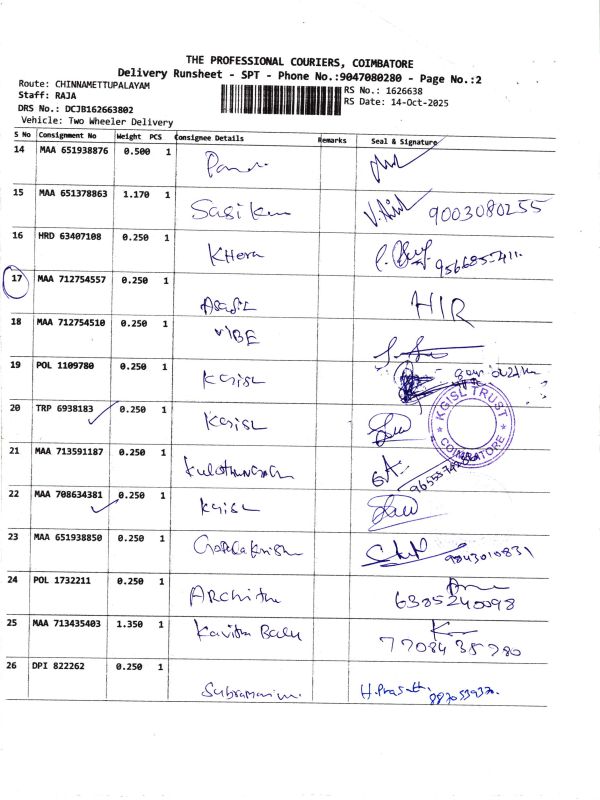 THE PROFESSIONAL COURIERS, COIMBATORE
Delivery Runsheet - SPT - Phone No.:9047080280 - Page No.:2
Route: CHINNAMETTUPALAYAM
RS No.: 1626638
Staff: RAJA
RS Date: 14-Oct-2025
DRS No.: DCJB162663802
Vehicle: Two Wheeler Delivery
S No Consignment No Weight PCS Consignee Details Remarks Seal & Signature
14 MAA 651938876 0.500 1
15 MAA 651378863 1.170 1 Sasikum 9003080255
16 HRD 63407108 0.250 1 KHera
17 MAA 712754557 0.250 1 HIR
18 MAA 712754510 0.250 1 VIBE
19 POL 1109780 0.250 1 KGISL
20 TRP 6938183 0.250 1 KGISL
KGISL TRUST
COIMBATORE
21 MAA 713591187 0.250 1
22 MAA 708634381 0.250 1 KGISL
23 MAA 651938850 0.250 1 Gopalakrishn 9843010831
24 POL 1732211 0.250 1 Architha 6385240098
25 MAA 713435403 1.350 1 Kavitha Balu 7708435780
26 DPI 822262 0.250 1 Subramaniam H.Prasath